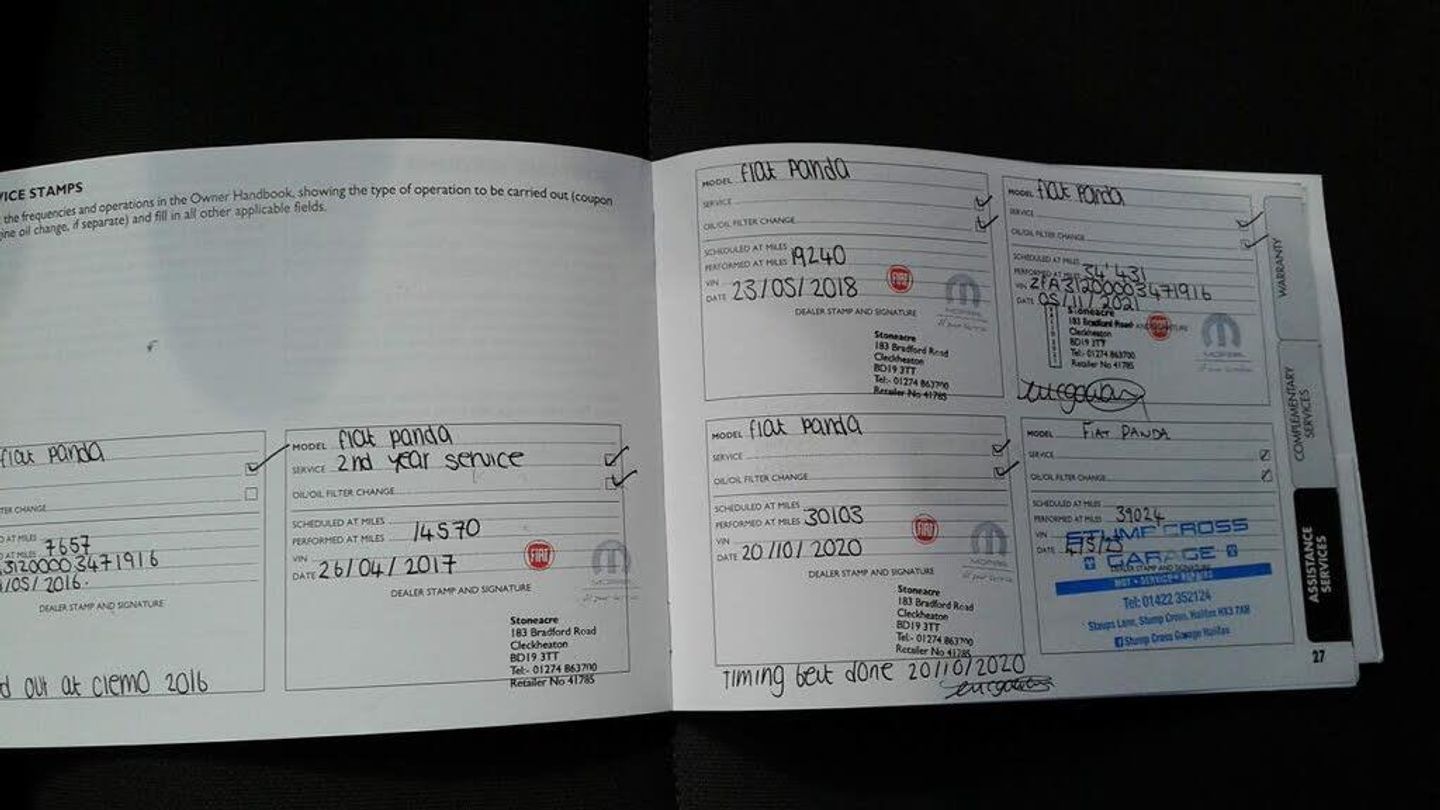 VICE STAMPS
the frequencies and operations in the Owner Handbook, showing the type of operation to be carried out (coupon
gine oil change, if separate) and fill in all other applicable fields.
fiat panda
TER CHANGE
D AT MILES
AT MILES 7657
3120000 3471916
/05/2016.
DEALER STAMP AND SIGNATURE
d out at clemo 2016
MODEL fiat panda
SERVICE 2nd year service
OIL/OIL FILTER CHANGE
SCHEDULED AT MILES
PERFORMED AT MILES 14570
VIN
DATE 26/04/2017
FIAT
MOPAR
DEALER STAMP AND SIGNATURE
Stoneacre
183 Bradford Road
Cleckheaton
BD19 3TT
Tel:- 01274 863700
Retailer No 41785
MODEL fiat panda
SERVICE
OIL/OIL FILTER CHANGE
SCHEDULED AT MILES
PERFORMED AT MILES 19240
VIN
DATE 23/05/2018
FIAT
MOPAR
DEALER STAMP AND SIGNATURE
Stoneacre
183 Bradford Road
Cleckheaton
BD19 3TT
Tel:- 01274 863700
Retailer No 41785
MODEL fiat panda
SERVICE
OIL/OIL FILTER CHANGE
SCHEDULED AT MILES
PERFORMED AT MILES 34'431
VIN ZFA31200003471916
DATE 05/11/2021
FIAT
MOPAR
Stoneacre
183 Bradford Road
Cleckheaton
BD19 3TT
Tel:- 01274 863700
Retailer No 41785
MODEL fiat panda
SERVICE
OIL/OIL FILTER CHANGE
SCHEDULED AT MILES
PERFORMED AT MILES 30103
VIN
DATE 20/10/2020
FIAT
MOPAR
DEALER STAMP AND SIGNATURE
Stoneacre
183 Bradford Road
Cleckheaton
BD19 3TT
Tel:- 01274 863700
Retailer No 41785
Timing belt done 20/10/2020
MODEL FIAT PANDA
SERVICE
OIL/OIL FILTER CHANGE
SCHEDULED AT MILES
PERFORMED AT MILES 39024
VIN
DATE
STUMP CROSS
GARAGE
DEALER STAMP AND SIGNATURE
MOT • SERVICE • REPAIRS
Tel: 01422 352124
Staups Lane, Stump Cross, Halifax HX3 7AB
Stump Cross Garage Halifax
WARRANTY
COMPLEMENTARY
SERVICES
ASSISTANCE
SERVICES
27